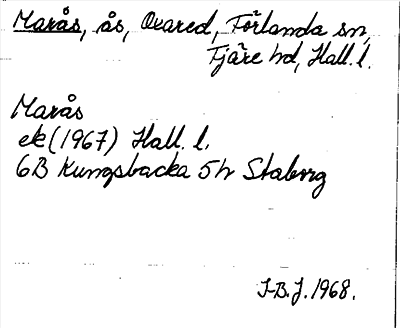 Marås, ås, Oxared, Förlanda sn,
Fjäre hd, Hall. l.
Marås
ek (1967) Hall. l.
6B Kungsbacka 5h Staborg
I-B.J. 1968.